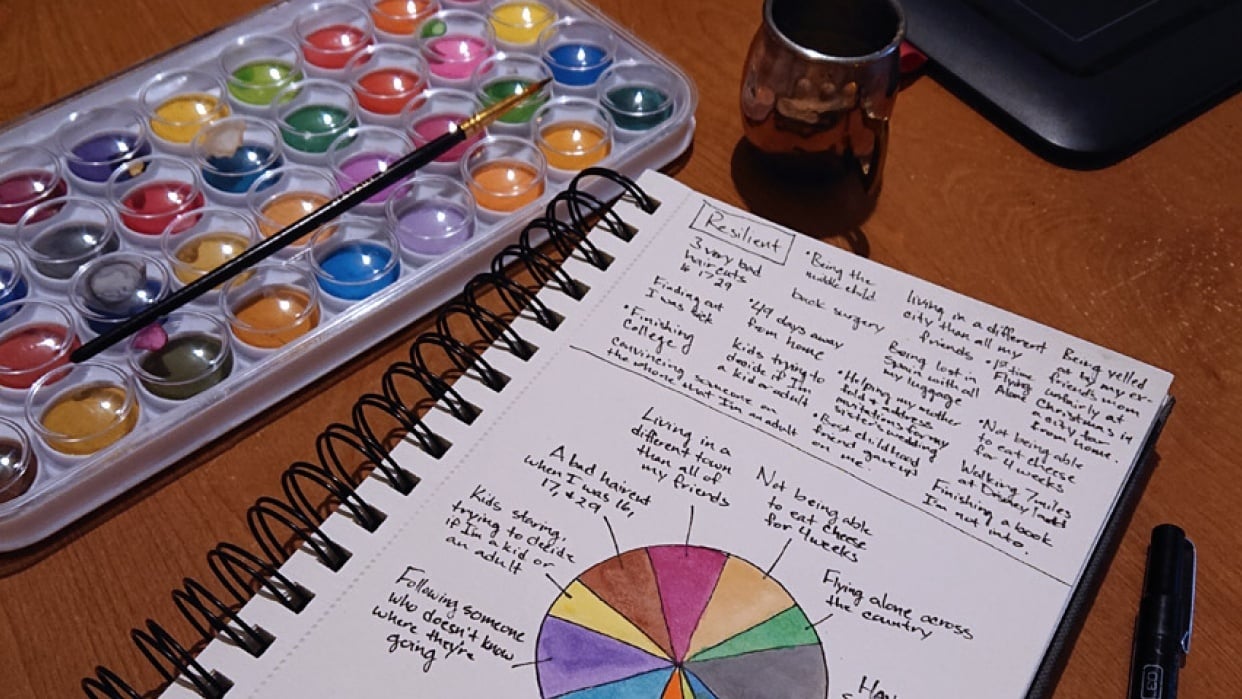 Resilient
3 very bad
haircuts
17 29
Finding out
I was sick
• Finishing
College
convincing someone on
the phone that I'm an adult
• Being the
middle child
back surgery
• 49 days away
from home
Kids trying to
decide if I'm
a kid or adult
• Helping my mother
fold & address
invitations for my
sister's wedding
• First childhood
friend gave up
on me
living in a different
city than all my
friends
Being lost in
Spain with all
my luggage
• 1st time
Flying
Alone
Being yelled
at by my ex-
friends mom
unfairly at
Christmas in
a city far
from home.
• Not being able
to eat cheese
for 4 weeks
Walking 7 miles
at Disneyland
Finishing a book
I'm not into.
Living in a
different town
than all of
my friends
A bad haircut
when I was 16,
17, & 29
Not being able
to eat cheese
for 4 weeks
Kids staring,
trying to decide
if I'm a kid or
an adult
Flying alone across
the country
Following someone
who doesn't know
where they're
going